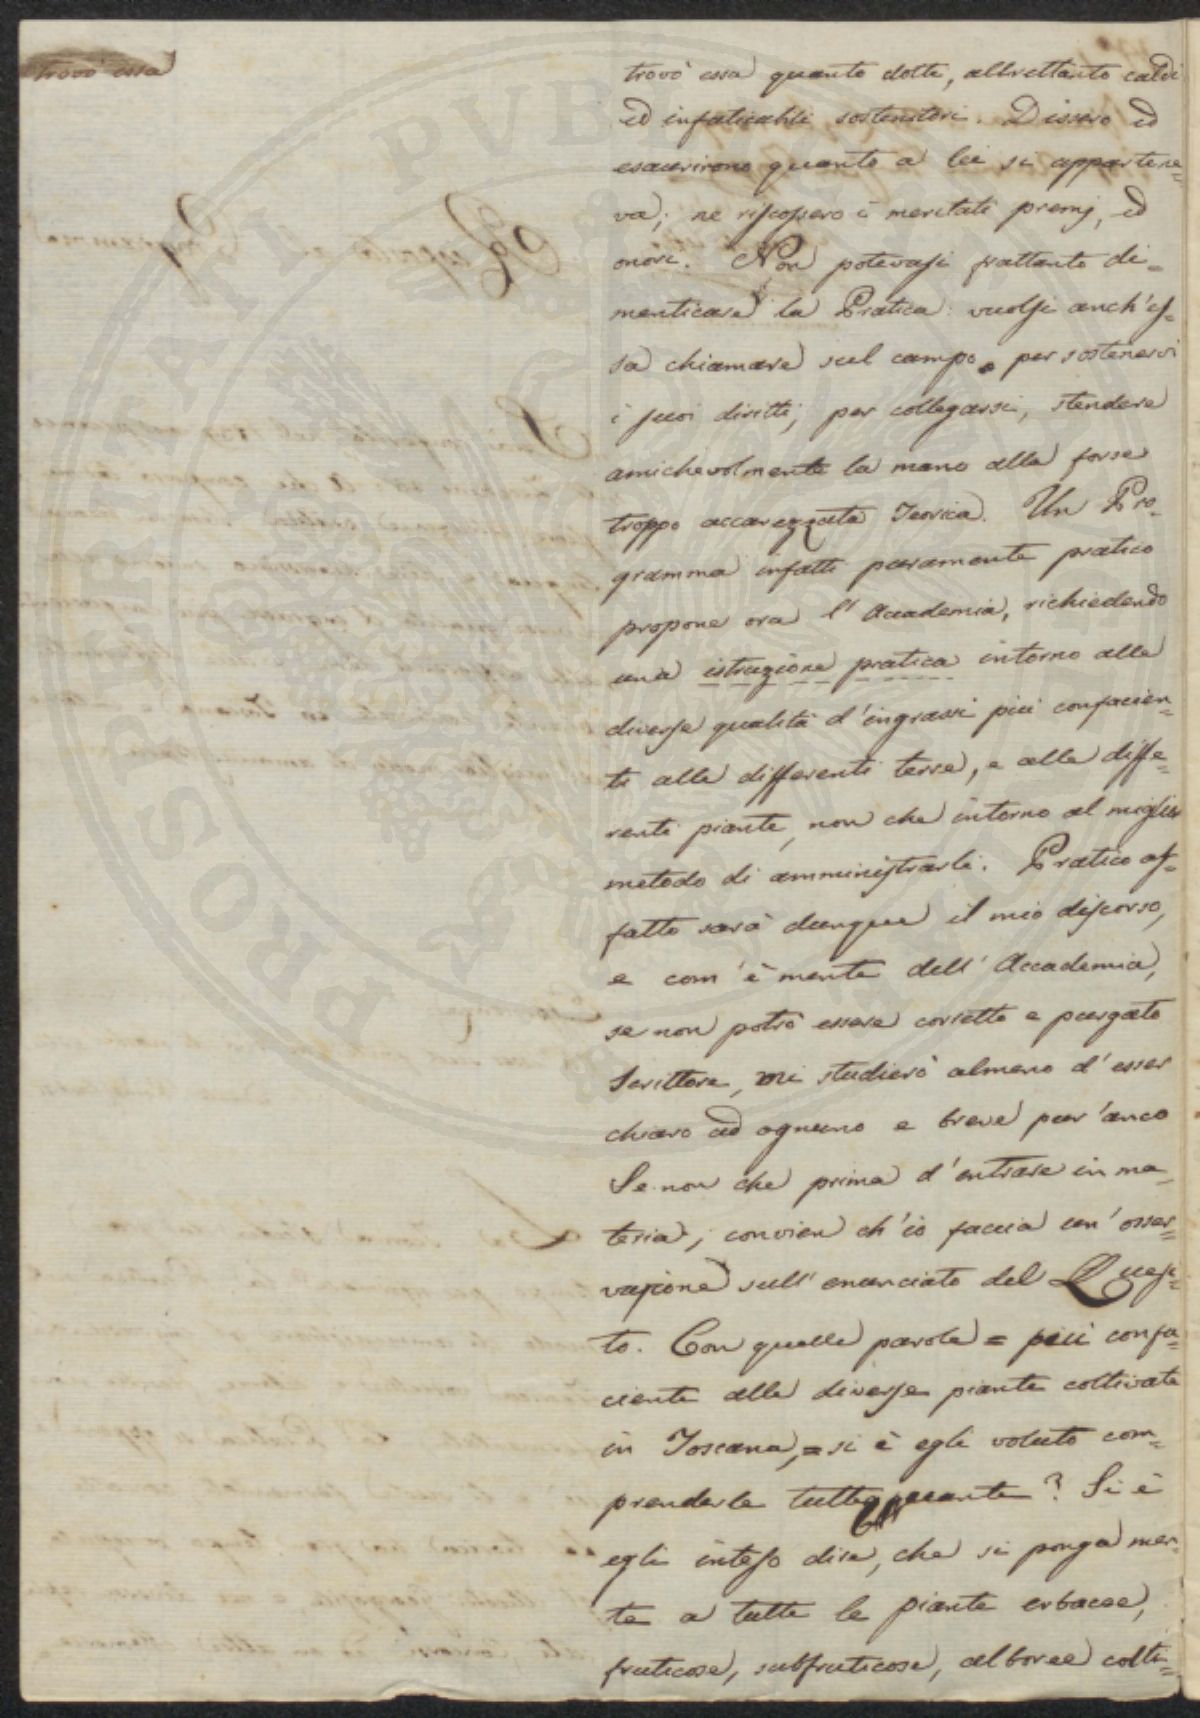 trovò essa
trovò essa quanto dotti, altrettanto caldi
ed infaticabili sostenitori. Dissero ed
esaurirono quanto a lei si appartene=
va; ne riscossero i meritati premj, ed
onori. Non potevasi frattanto di=
menticare la Pratica: vuolsi anch'es=
sa chiamare sul campo per sostenervi
i suoi diritti, per collegarsi, stendere
amichevolmente la mano alla forse
troppo accarezzata Teorica. Un Pro=
gramma infatti puramente pratico
propone ora l'Accademia, richiedendo
una istruzione pratica intorno alle
diverse qualità d'ingrassi più confacien=
ti alle differenti terre, e alle diffe=
renti piante, non che intorno al miglior
metodo di amministrarli. Pratico af=
fatto sarà dunque il mio discorso,
e com'è mente dell'Accademia,
se non potrò essere corretto e purgato
Scrittore, mi studierò almeno d'esser
chiaro ad ognuno e breve pur'anco
Se non che prima d'entrare in ma=
teria, convien ch'io faccia un'osser=
vazione sull'enunciato del Quesi=
to. Con quelle parole = più confa=
ciente alle diverse piante coltivate
in Toscana, = si è egli voluto com=
prenderle tutte quante? Si è
egli inteso dire, che si ponga men=
te a tutte le piante erbacee,
fruticose, subfruticose, alboree colti=